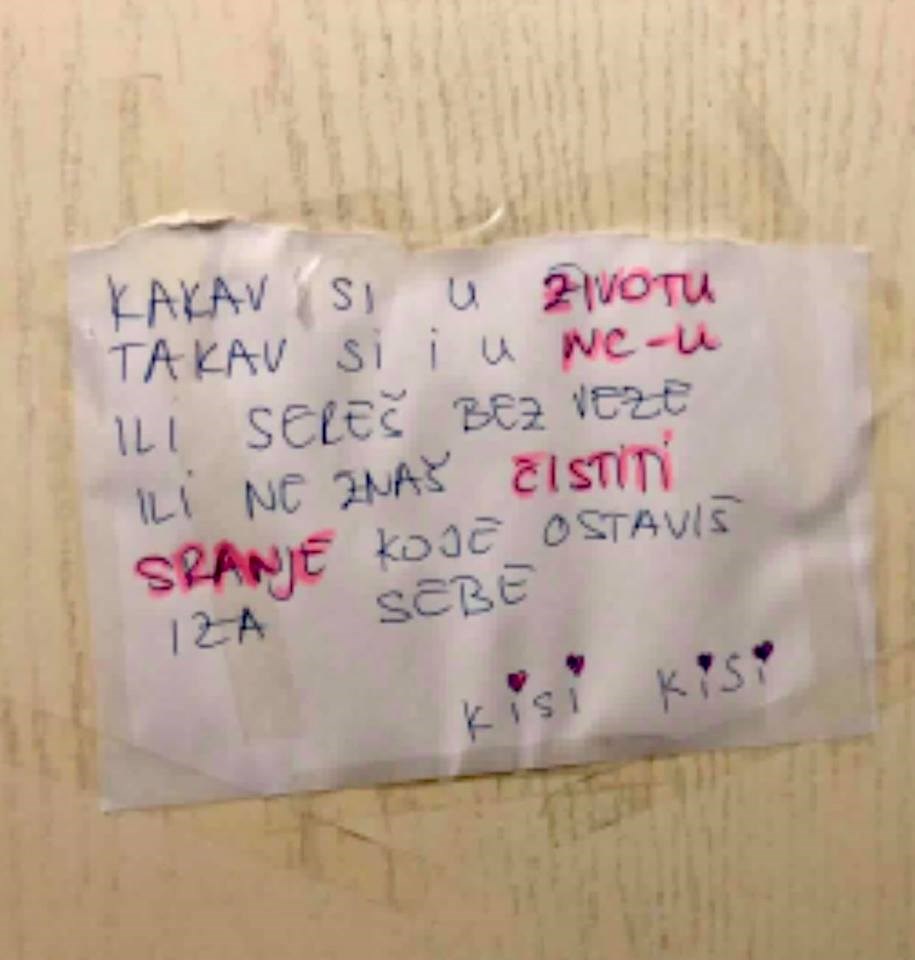 KAKAV SI U ŽIVOTU
TAKAV Si i U NC-U
ILI SEREŠ BEZ VEZE
ILI NE ZNAŠ ČISTITI
SRANJE KOJE OSTAVIŠ
IZA SEBE
Kisi KiSi